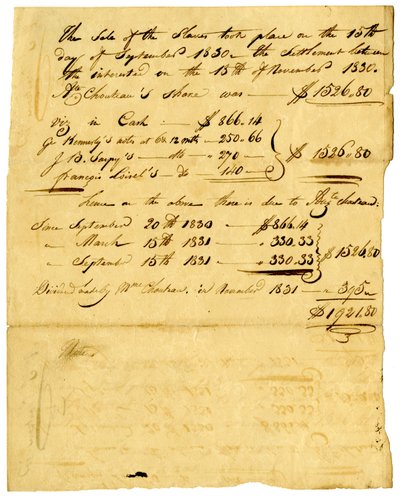 The Sale of the Slaves took place on the 15th
day of September 1830 – the Settlement between
the interested on the 15th of November 1830.
Chouteau's Share was — $1526.80
Viz in Cash — $866.14
Kennerly's notes at 6 & 12 mths – 250.66
J. B. Sarpy's — do — " 270 —
François Loisel's – do — 140 —
$1526.80
Hence on the above there is due to Chouteau:
Since September 20th 1830 — $866.14
" March 15th 1831 — " 330.33
" September 15th 1831 — " 330.33
$1526.80
by Mme Chouteau in November 1831 — " 395 "
$1921.80